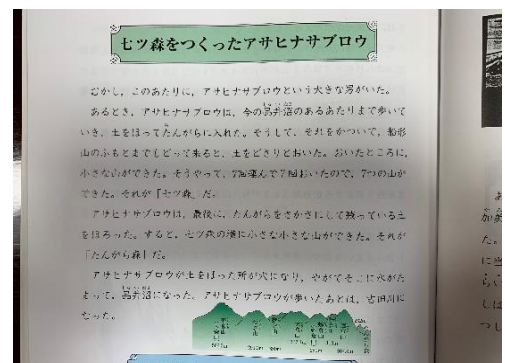 七ツ森をつくったアサヒナサブロウ
むかし、このあたりに、アサヒナサブロウという大きな男がいた。
あるとき、アサヒナサブロウは、今の品井沼のあるあたりまで歩いて
いき、土をほってたんがらに入れた。そうして、それをかついで、船形
山のふもとまでもどって来ると、土をどさりとおいた。おいたところに、
小さな山ができた。そうやって、7回運んで7回おいたので、7つの山が
できた。それが「七ツ森」だ。
アサヒナサブロウは、最後に、たんがらをさかさにして残っている土
をほろった。すると、七ツ森の横に小さな小さな山ができた。それが
「たんがら森」だ。
アサヒナサブロウが土をほった所が穴になり、やがてそこに水がた
まって、品井沼になった。アサヒナサブロウが歩いたあとは、吉田川に
なった。